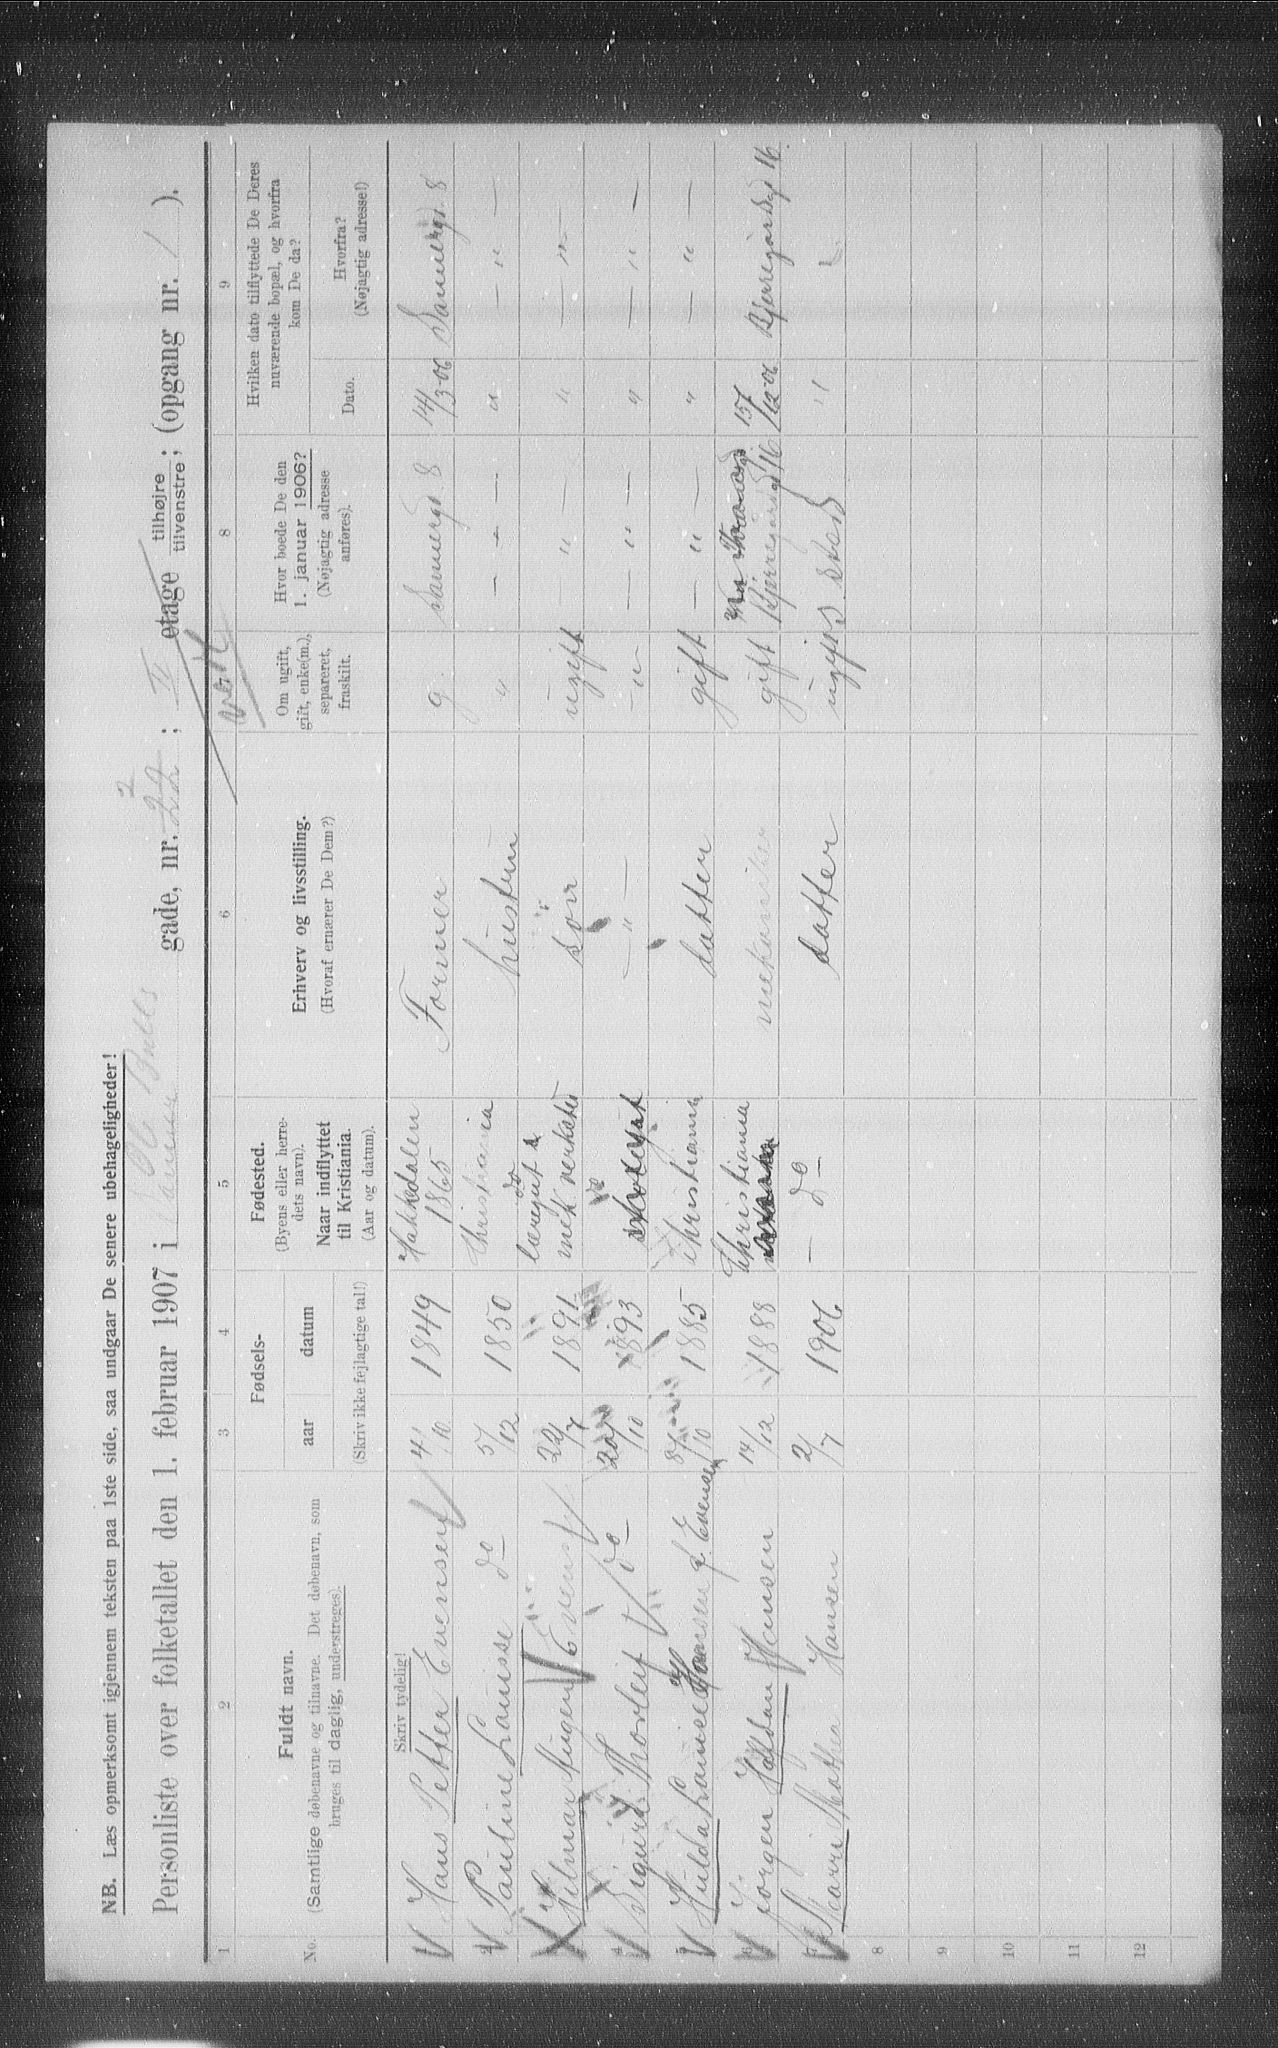 NB. Læs opmerksomt igjennem teksten paa 1ste side, saa undgaar De senere ubehageligheder!
Ole Bulls 2
Personliste over folketallet den 1. februar 1907 i Sanner gade, nr. 22 ; IV etage tilhøjre tilvenstre; (opgang nr. 1 ).
1 2 3 4 5 6 8 9
No.
Fuldt navn.
(Samtlige døbenavne og tilnavne. Det døbenavn, som
bruges til daglig, understreges).
Skriv tydelig!
Fødsels-
aar datum
(Skriv ikke fejlagtige tal!)
Fødested.
(Byens eller herre-
dets navn).
Naar indflyttet
til Kristiania.
(Aar og datum).
Erhverv og livsstilling.
(Hvoraf ernærer De Dem?)
Om ugift,
gift, enke(m.),
separeret,
fraskilt.
Hvor boede De den
1. januar 1906?
(Nøjagtig adresse
anføres).
Hvilken dato tilflyttede De Deres
nuværende bopæl, og hvorfra
kom De da?
Dato.
Hvorfra?
(Nøjagtig adresse!)
Hans Petter Evensen 4/10 1849 Hakkedalen 1865 Former g. Sannergd. 8 14/3 06 Sannergd. 8
2 Pauline Lauisse do 5/12 1850 Christiania hustru " — — — " — " —
Hilmar Eugen Evensen 22/7 1891 do læregut mek verksted søn ugift — " — " — " —
4 Sigurd Thorleif do 20/10 1893 do — " — — " — — " — " — " —
5 Hulda Louise Hansen f. Evensen 8/10 1885 Christiania datter gift — " — " — " —
6 Jørgen Halfdan Hansen 14/12 1888 Christiania mekaniker gift Bjerregårdsgd 16 15/12 06 Bjerregårdsgd 16
7 Hansen 2/7 1906 — do — datter ugift "
8
9
10
11
12